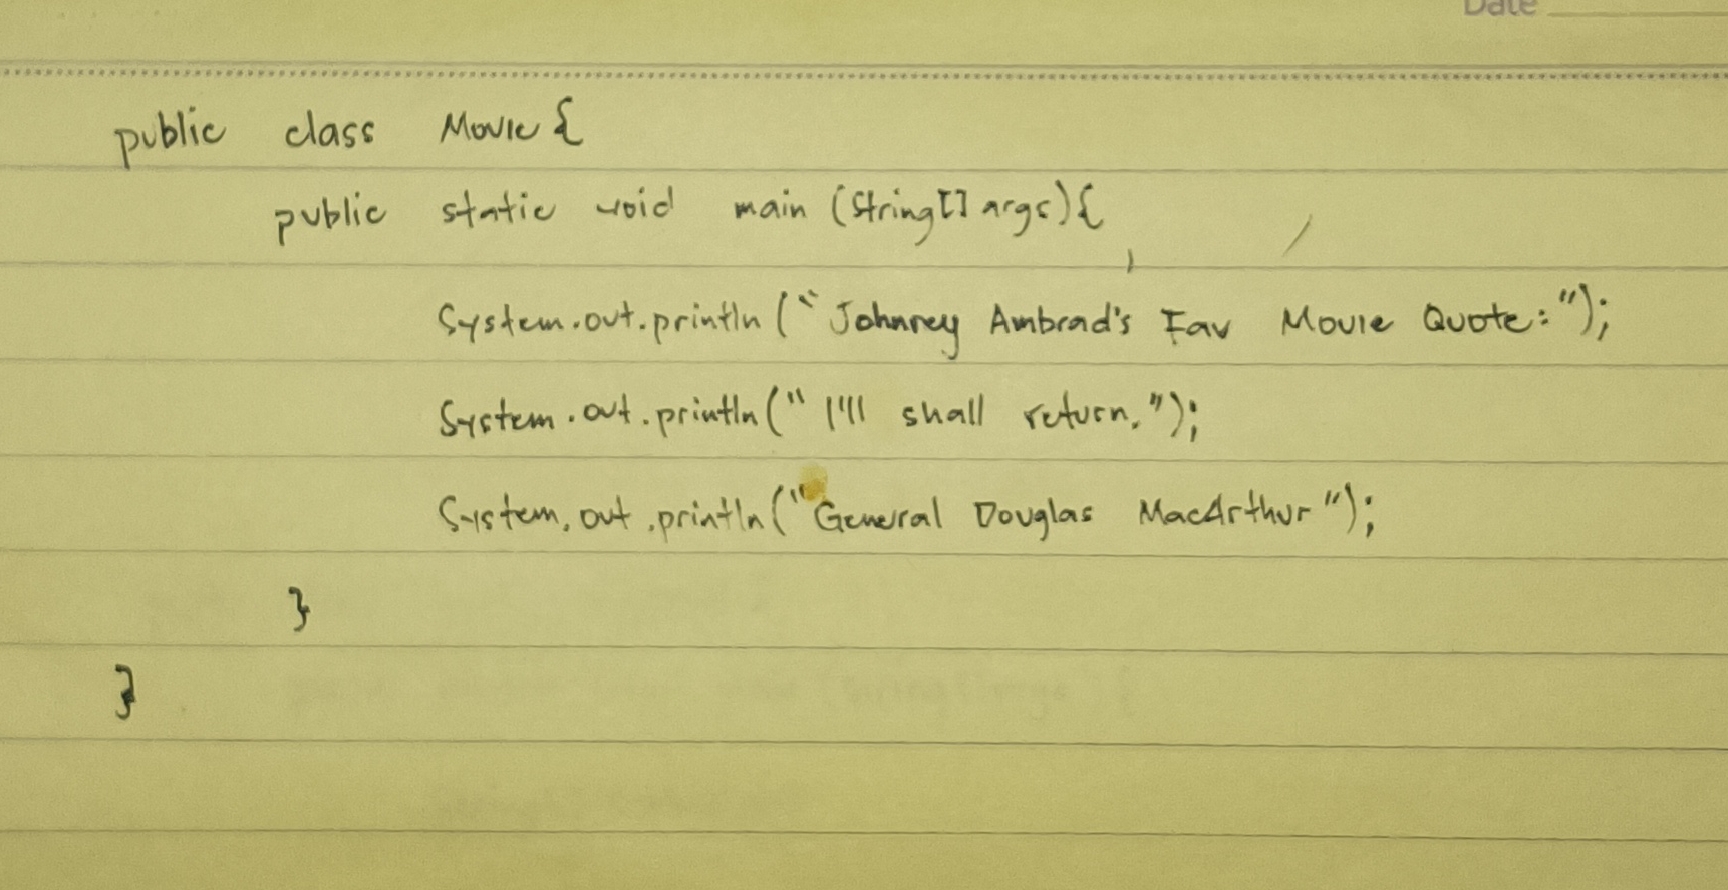 Date
public class Movie {
public static void main (String[] args){
System.out.println ("Johnrey Ambrad's Fav Movie Quote:");
System.out.println ("I'll shall return.");
System.out.println ("General Douglas MacArthur");
}
}